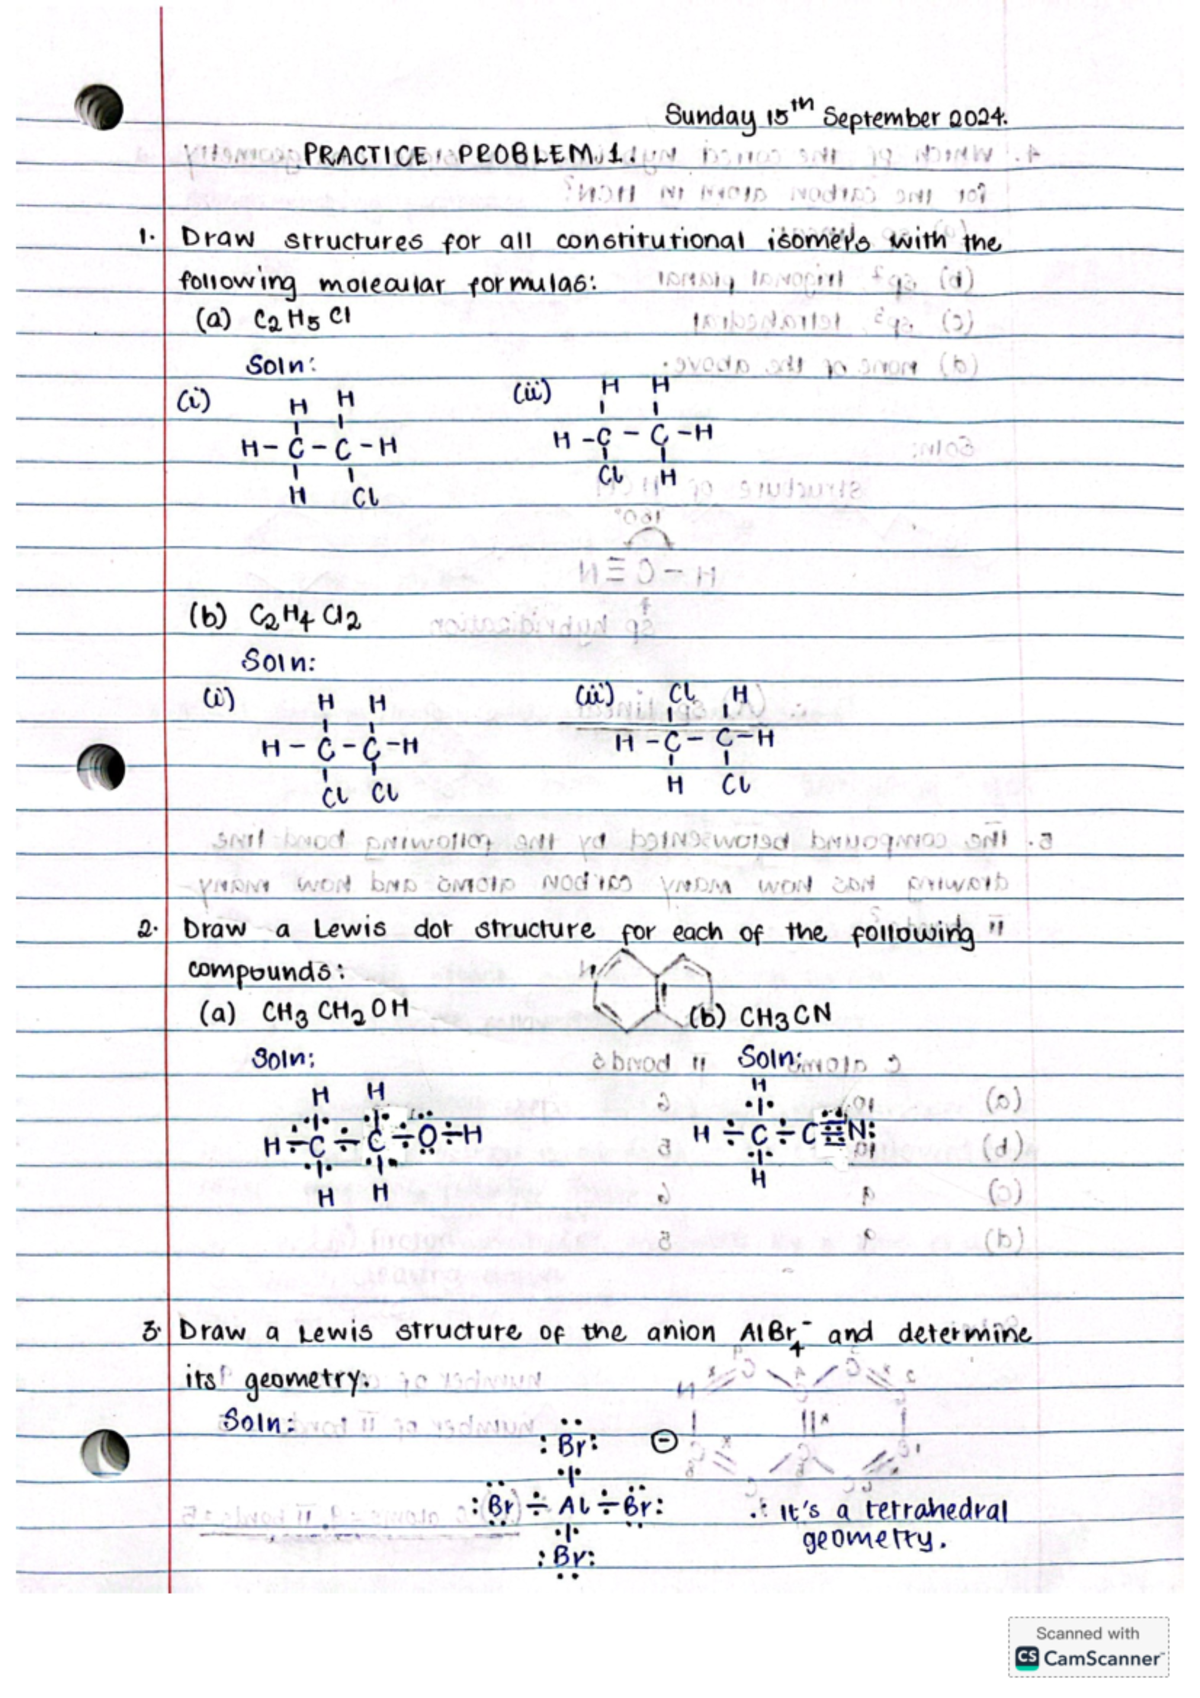 Sunday 15th September 2024.
PRACTICE PROBLEM 1.
1. Draw structures for all constitutional isomers with the
following molecular formulas:
(a) C2H5Cl
Soln:
(i) (ii)
H H H H
H-C-C-H H-C-C-H
H Cl Cl H
(b) C2H4Cl2
Soln:
(i) (ii)
H H Cl H
H-C-C-H H-C-C-H
Cl Cl H Cl
2. Draw a Lewis dot structure for each of the following
compounds:
(a) CH3CH2OH (b) CH3CN
Soln: Soln:
H H H
H-C-C-O-H H-C-C≡N:
H H H
3. Draw a Lewis structure of the anion AlBr4- and determine
its geometry.
Soln:
:Br: ⊖
:Br-Al-Br:
:Br:
∴ it's a tetrahedral
geometry.
Scanned with
CS CamScanner